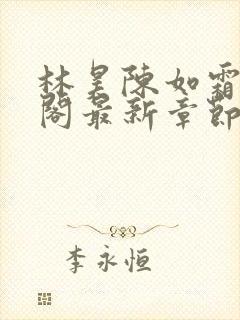 林昊陳如霜
閣最新章節
李永恒